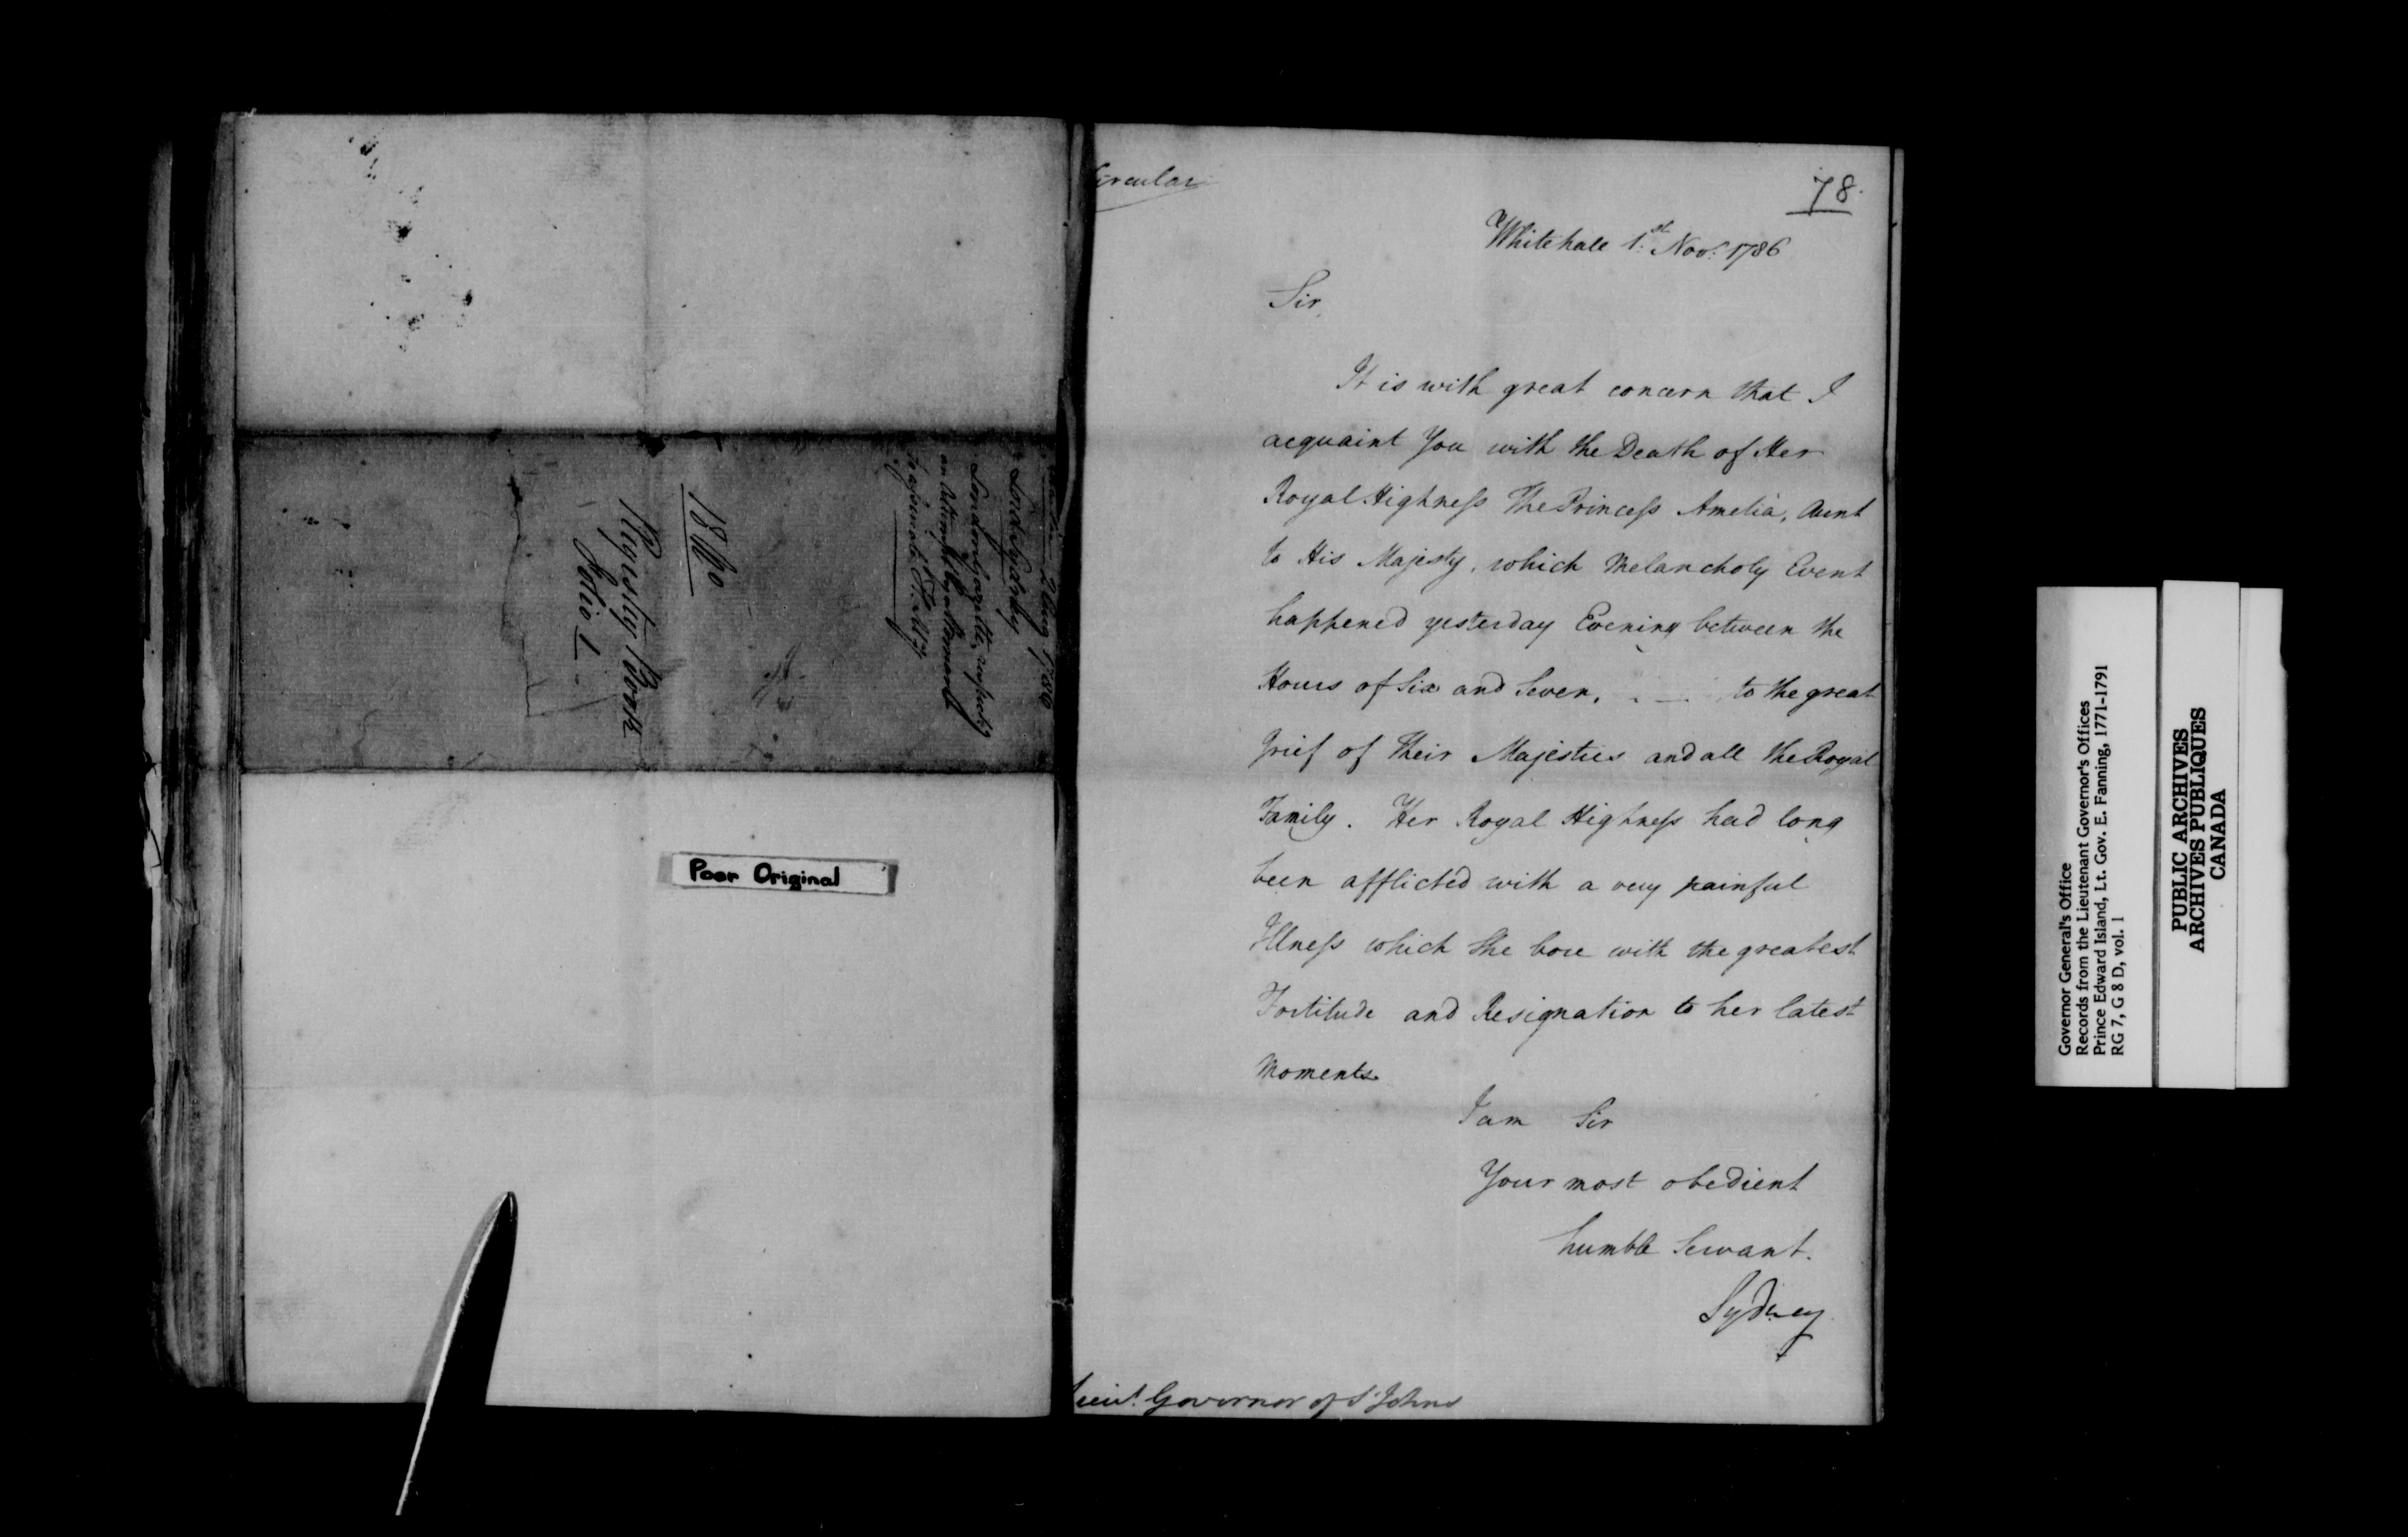 2 Aug 1786
Lord Sydney
London Gazette, respecting
an Attempt
to assassinate
18th
Registry Book
Folio 1
Poor Original
Circular
78.
Whitehall 1.st Nov.r 1786
Sir,
It is with great concern that I
acquaint You with the Death of Her
Royal Highneſs The Princeſs Amelia, Aunt
to His Majesty, which Melancholy Event
happened yesterday Evening between the
Hours of Six and Seven, . — to the great
Grief of Their Majesties and all the Royal
Family. Her Royal Highneſs had long
been afflicted with a very painful
Illneſs which She bore with the greatest
Fortitude and Resignation to her latest
Moments.
I am Sir
Your most obedient
humble Servant.
Sydney
Lieut. Governor of St Johns
Governor General's Office
Records from the Lieutenant Governor's Offices
Prince Edward Island, Lt. Gov. E. Fanning, 1771-1791
RG 7, G 8 D, vol. 1
PUBLIC ARCHIVES
ARCHIVES PUBLIQUES
CANADA